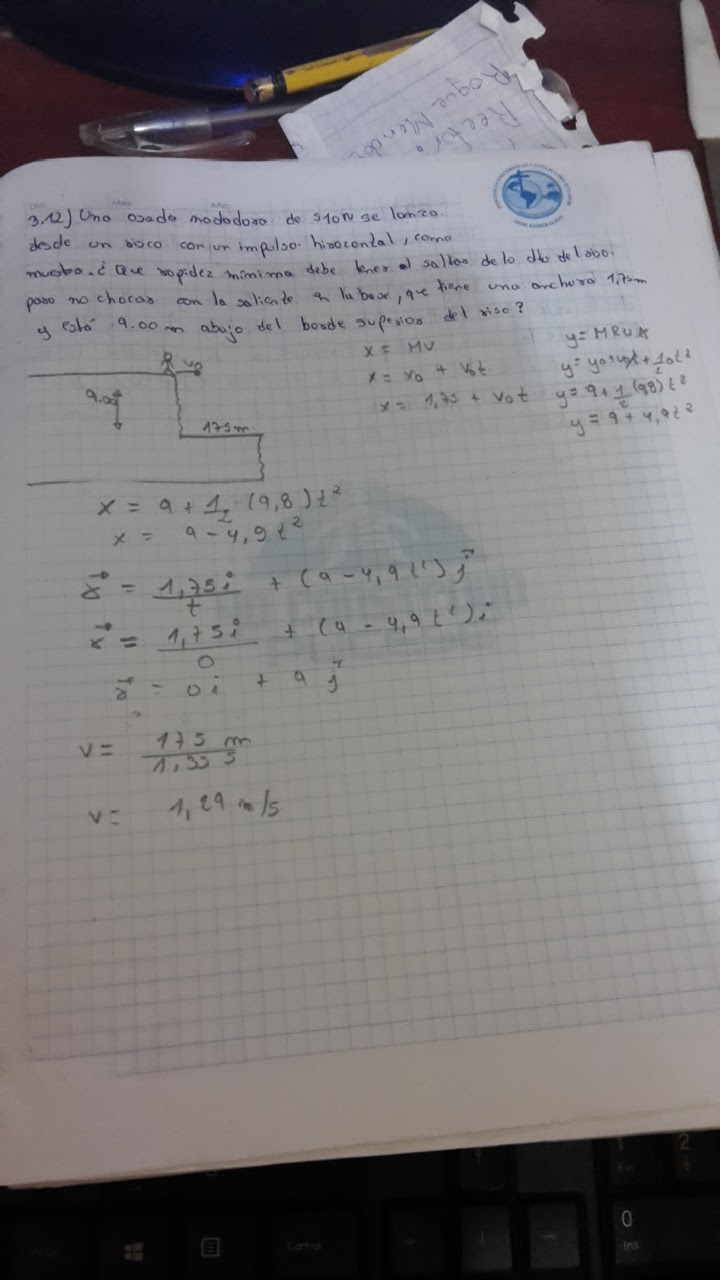 Rector
Roque Mendo
3.12) Una osada nadadora de 510N se lanza
desde un risco con un impulso horizontal, como
muestra. ¿ Que rapidez mínima debe tener al saltar de lo alto del risco
para no chocar con la saliente en la base, que tiene una anchura 1,75m
y está 9.00 m abajo del borde superior del riso?
x = MU
x = x0 + v0t
x = 1,75 + v0t
y = MRUA
y = y0+v0t + 1/2 at²
y = 9 + 1/2 (9,8) t²
y = 9 + 4,9t²
v0
9.00
175m
x = 9 + 1/2 (9,8) t²
x = 9 - 4,9t²
= 1,75i/t + (9 - 4,9t²) j
= 1,75i/0 + (9 - 4,9t²) i
= 0i + 9 j
v = 175 m / 1,35 s
v = 1,29 m/s
1
2
Fin
Control
0
Ins